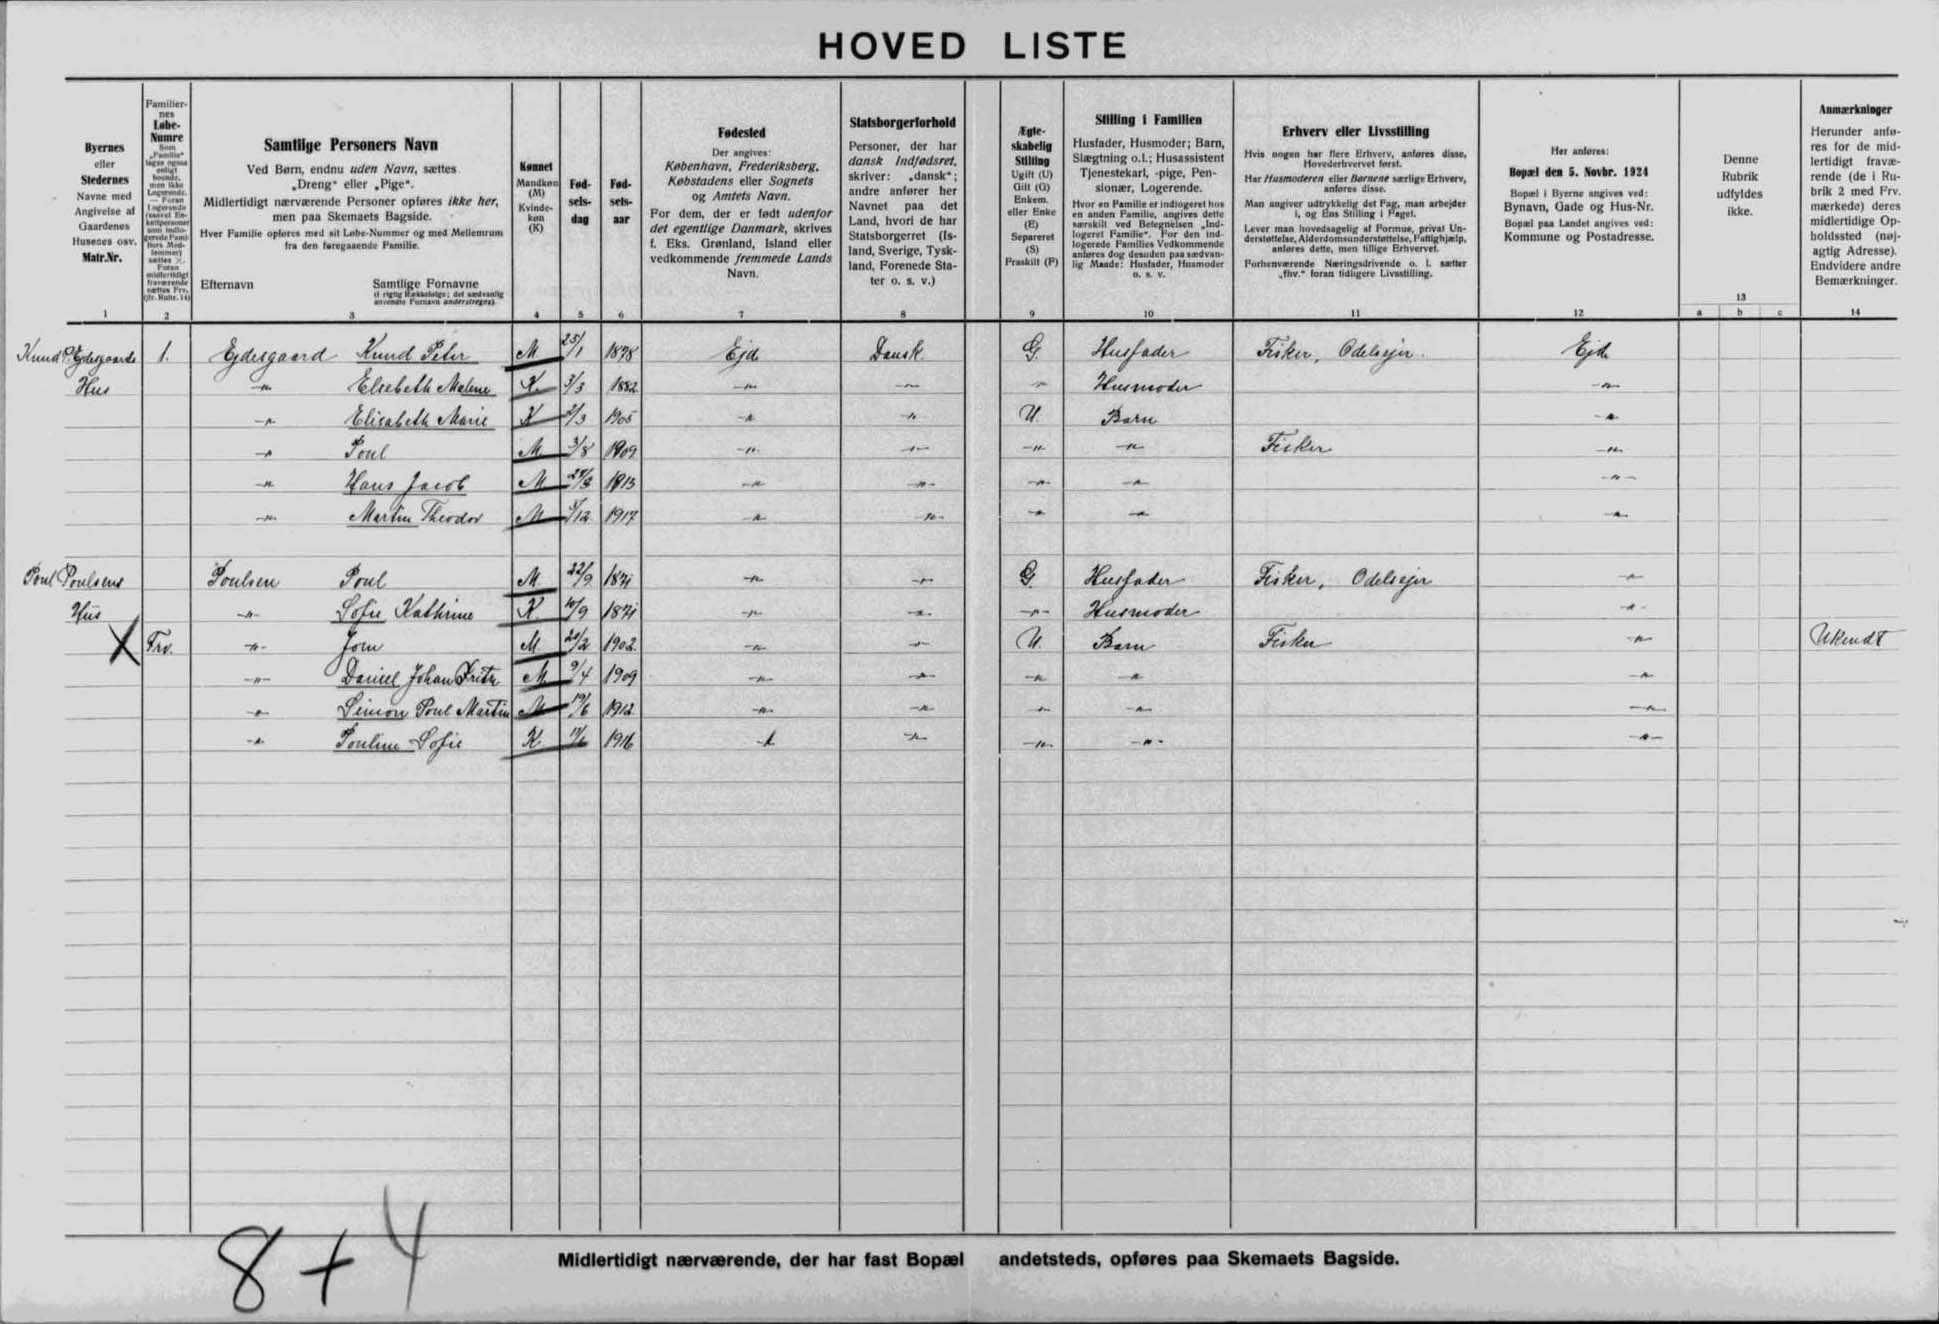 HOVED LISTE
Byernes
eller
Stedernes
Navne med
Angivelse af
Gaardenes
Husenes osv.
Matr.Nr.
1
Familier-
nes
Løbe-
Numre
Som
„Familie“
tages ogsaa
enligt
boende,
men ikke
Logerende.
— Foran
Logerende
(saavel En-
keltpersoner
som indlo-
gerede Fami-
liers Med-
lemmer)
sættes ×.
Foran
midlertidigt
fraværende
sættes Frv.
(jfr. Rubr. 14)
2
Samtlige Personers Navn
Ved Børn, endnu uden Navn, sættes
„Dreng“ eller „Pige“.
Midlertidigt nærværende Personer opføres ikke her,
men paa Skemaets Bagside.
Hver Familie opføres med sit Løbe-Nummer og med Mellemrum
fra den foregaaende Familie.
Efternavn
Samtlige Fornavne
(i rigtig Rækkefølge; det sædvanlig
anvendte Fornavn understreges).
3
Kønnet
Mandkøn
(M)
Kvinde-
køn
(K)
4
Fød-
sels-
dag
5
Fød-
sels-
aar
6
Fødested
Der angives:
København, Frederiksberg,
Købstadens eller Sognets
og Amtets Navn.
For dem, der er født udenfor
det egentlige Danmark, skrives
f. Eks. Grønland, Island eller
vedkommende fremmede Lands
Navn.
7
Statsborgerforhold
Personer, der har
dansk Indfødsret,
skriver: „dansk“;
andre anfører her
Navnet paa det
Land, hvori de har
Statsborgerret (Is-
land, Sverige, Tysk-
land, Forenede Sta-
ter o. s. v.)
8
Ægte-
skabelig
Stilling
Ugift (U)
Gift (G)
Enkem.
eller Enke
(E)
Separeret
(S)
Fraskilt (F)
9
Stilling i Familien
Husfader, Husmoder; Barn,
Slægtning o.l.; Husassistent
Tjenestekarl, -pige, Pen-
sionær, Logerende.
Hvor en Familie er indlogeret hos
en anden Familie, angives dette
særskilt ved Betegnelsen „Ind-
logeret Familie“. For den ind-
logerede Families Vedkommende
anføres dog desuden paa sædvan-
lig Maade: Husfader, Husmoder
o. s. v.
10
Erhverv eller Livsstilling
Hvis nogen har flere Erhverv, anføres disse,
Hovederhvervet først.
Har Husmoderen eller Børnene særlige Erhverv,
anføres disse.
Man angiver udtrykkelig det Fag, man arbejder
i, og Ens Stilling i Faget.
Lever man hovedsagelig af Formue, privat Un-
derstøttelse, Alderdomsunderstøttelse, Fattighjælp,
anføres dette, men tillige Erhvervet.
Forhenværende Næringsdrivende o. l. sætter
„fhv.“ foran tidligere Livsstilling.
11
Her anføres:
Bopæl den 5. Novbr. 1924
Bopæl i Byerne angives ved:
Bynavn, Gade og Hus-Nr.
Bopæl paa Landet angives ved:
Kommune og Postadresse.
12
Denne
Rubrik
udfyldes
ikke.
13
a b c
Anmærkninger
Herunder anfø-
res for de mid-
lertidigt fravæ-
rende (de i Ru-
brik 2 med Frv.
mærkede) deres
midlertidige Op-
holdssted (nøj-
agtig Adresse).
Endvidere andre
Bemærkninger.
14
Knud P. Ejdesgaards 1. Ejdesgaard Knud Peter M 25/1 1878 Ejde Dansk. G. Husfader Fisker, Odelsejer. Ejde
Hus -"- Elsebeth Malene K. 3/3 1882 -"- -"- -"- Husmoder -"-
-"- Elisabeth Marie K 2/3 1905 -"- -"- U. Barn -"-
-"- Poul M 3/8 1909 -"- -"- -"- -"- Fisker -"-
-"- Hans Jacob M 1913 -"- -"- -"- -"- -"-
-"- Martin Theodor M 1917 -"- -"- -"- -"- -"-
Poul Poulsens Poulsen Poul M. 22/9 1871 -"- -"- G. Husfader Fisker, Odelsejer -"-
Hus -"- Sofie Kathrine K. 10/9 1871 -"- -"- -"- Husmoder -"-
X Frv. -"- M. 20/2 1902. -"- -"- U. Barn Fisker -"- Ukendt
-"- Daniel Johan Fritz M 9/4 1909 -"- -"- -"- -"- -"-
-"- Simon Poul Martin M 19/6 1912. -"- -"- -"- -"- -"-
-"- Pouline Sofie K. 1916 -"- -"- -"- -"- -"-
8 + 4
Midlertidigt nærværende, der har fast Bopæl andetsteds, opføres paa Skemaets Bagside.